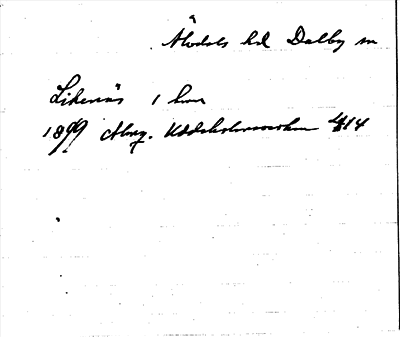 Älvdals hd Dalby sn
Likenäs 1 hmn
1899 Abrg. Uddeholmsverken 4/14